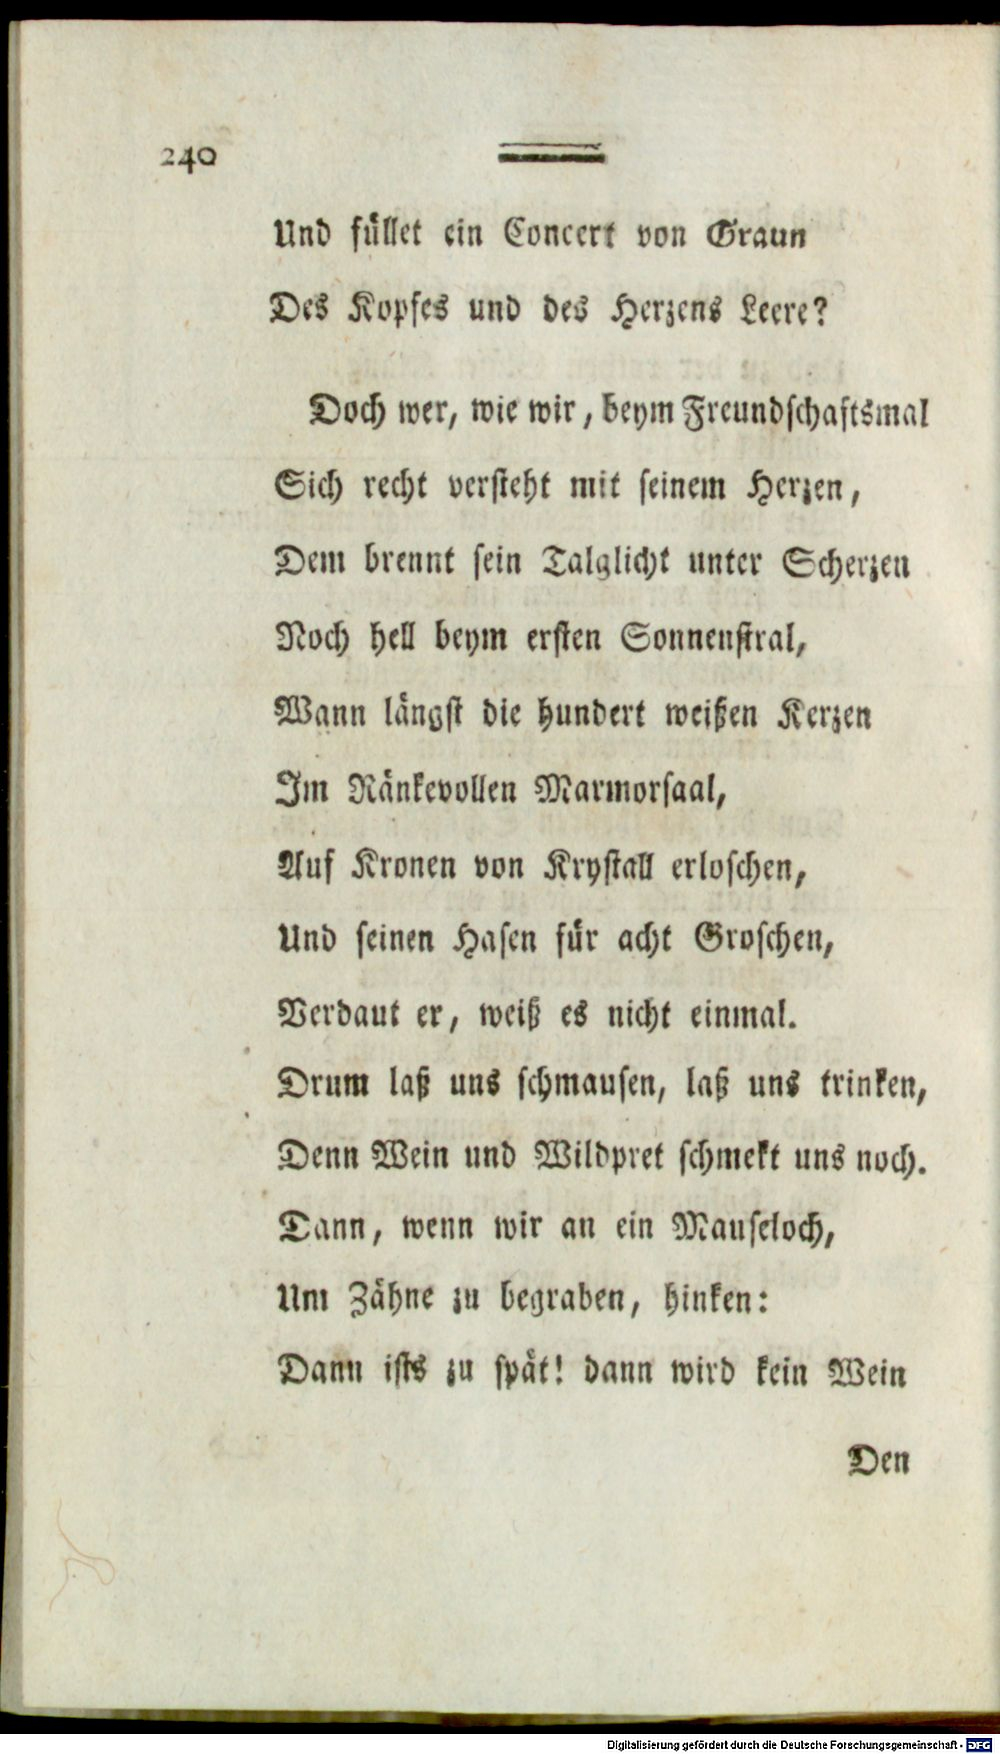 240
Und füllet ein Concert von Graun
Des Kopfes und des Herzens Leere?
Doch wer, wie wir, beym Freundschaftsmal
Sich recht versteht mit seinem Herzen,
Dem brennt sein Talglicht unter Scherzen
Noch hell beym ersten Sonnenstral,
Wann längst die hundert weißen Kerzen
Im Ränkevollen Marmorsaal,
Auf Kronen von Krystall erloschen,
Und seinen Hasen für acht Groschen,
Verdaut er, weiß es nicht einmal.
Drum laß uns schmausen, laß uns trinken,
Denn Wein und Wildpret schmekt uns noch.
Dann, wenn wir an ein Mauseloch,
Um Zähne zu begraben, hinken:
Dann ists zu spät! dann wird kein Wein
Den
Digitalisierung gefördert durch die Deutsche Forschungsgemeinschaft - DFG